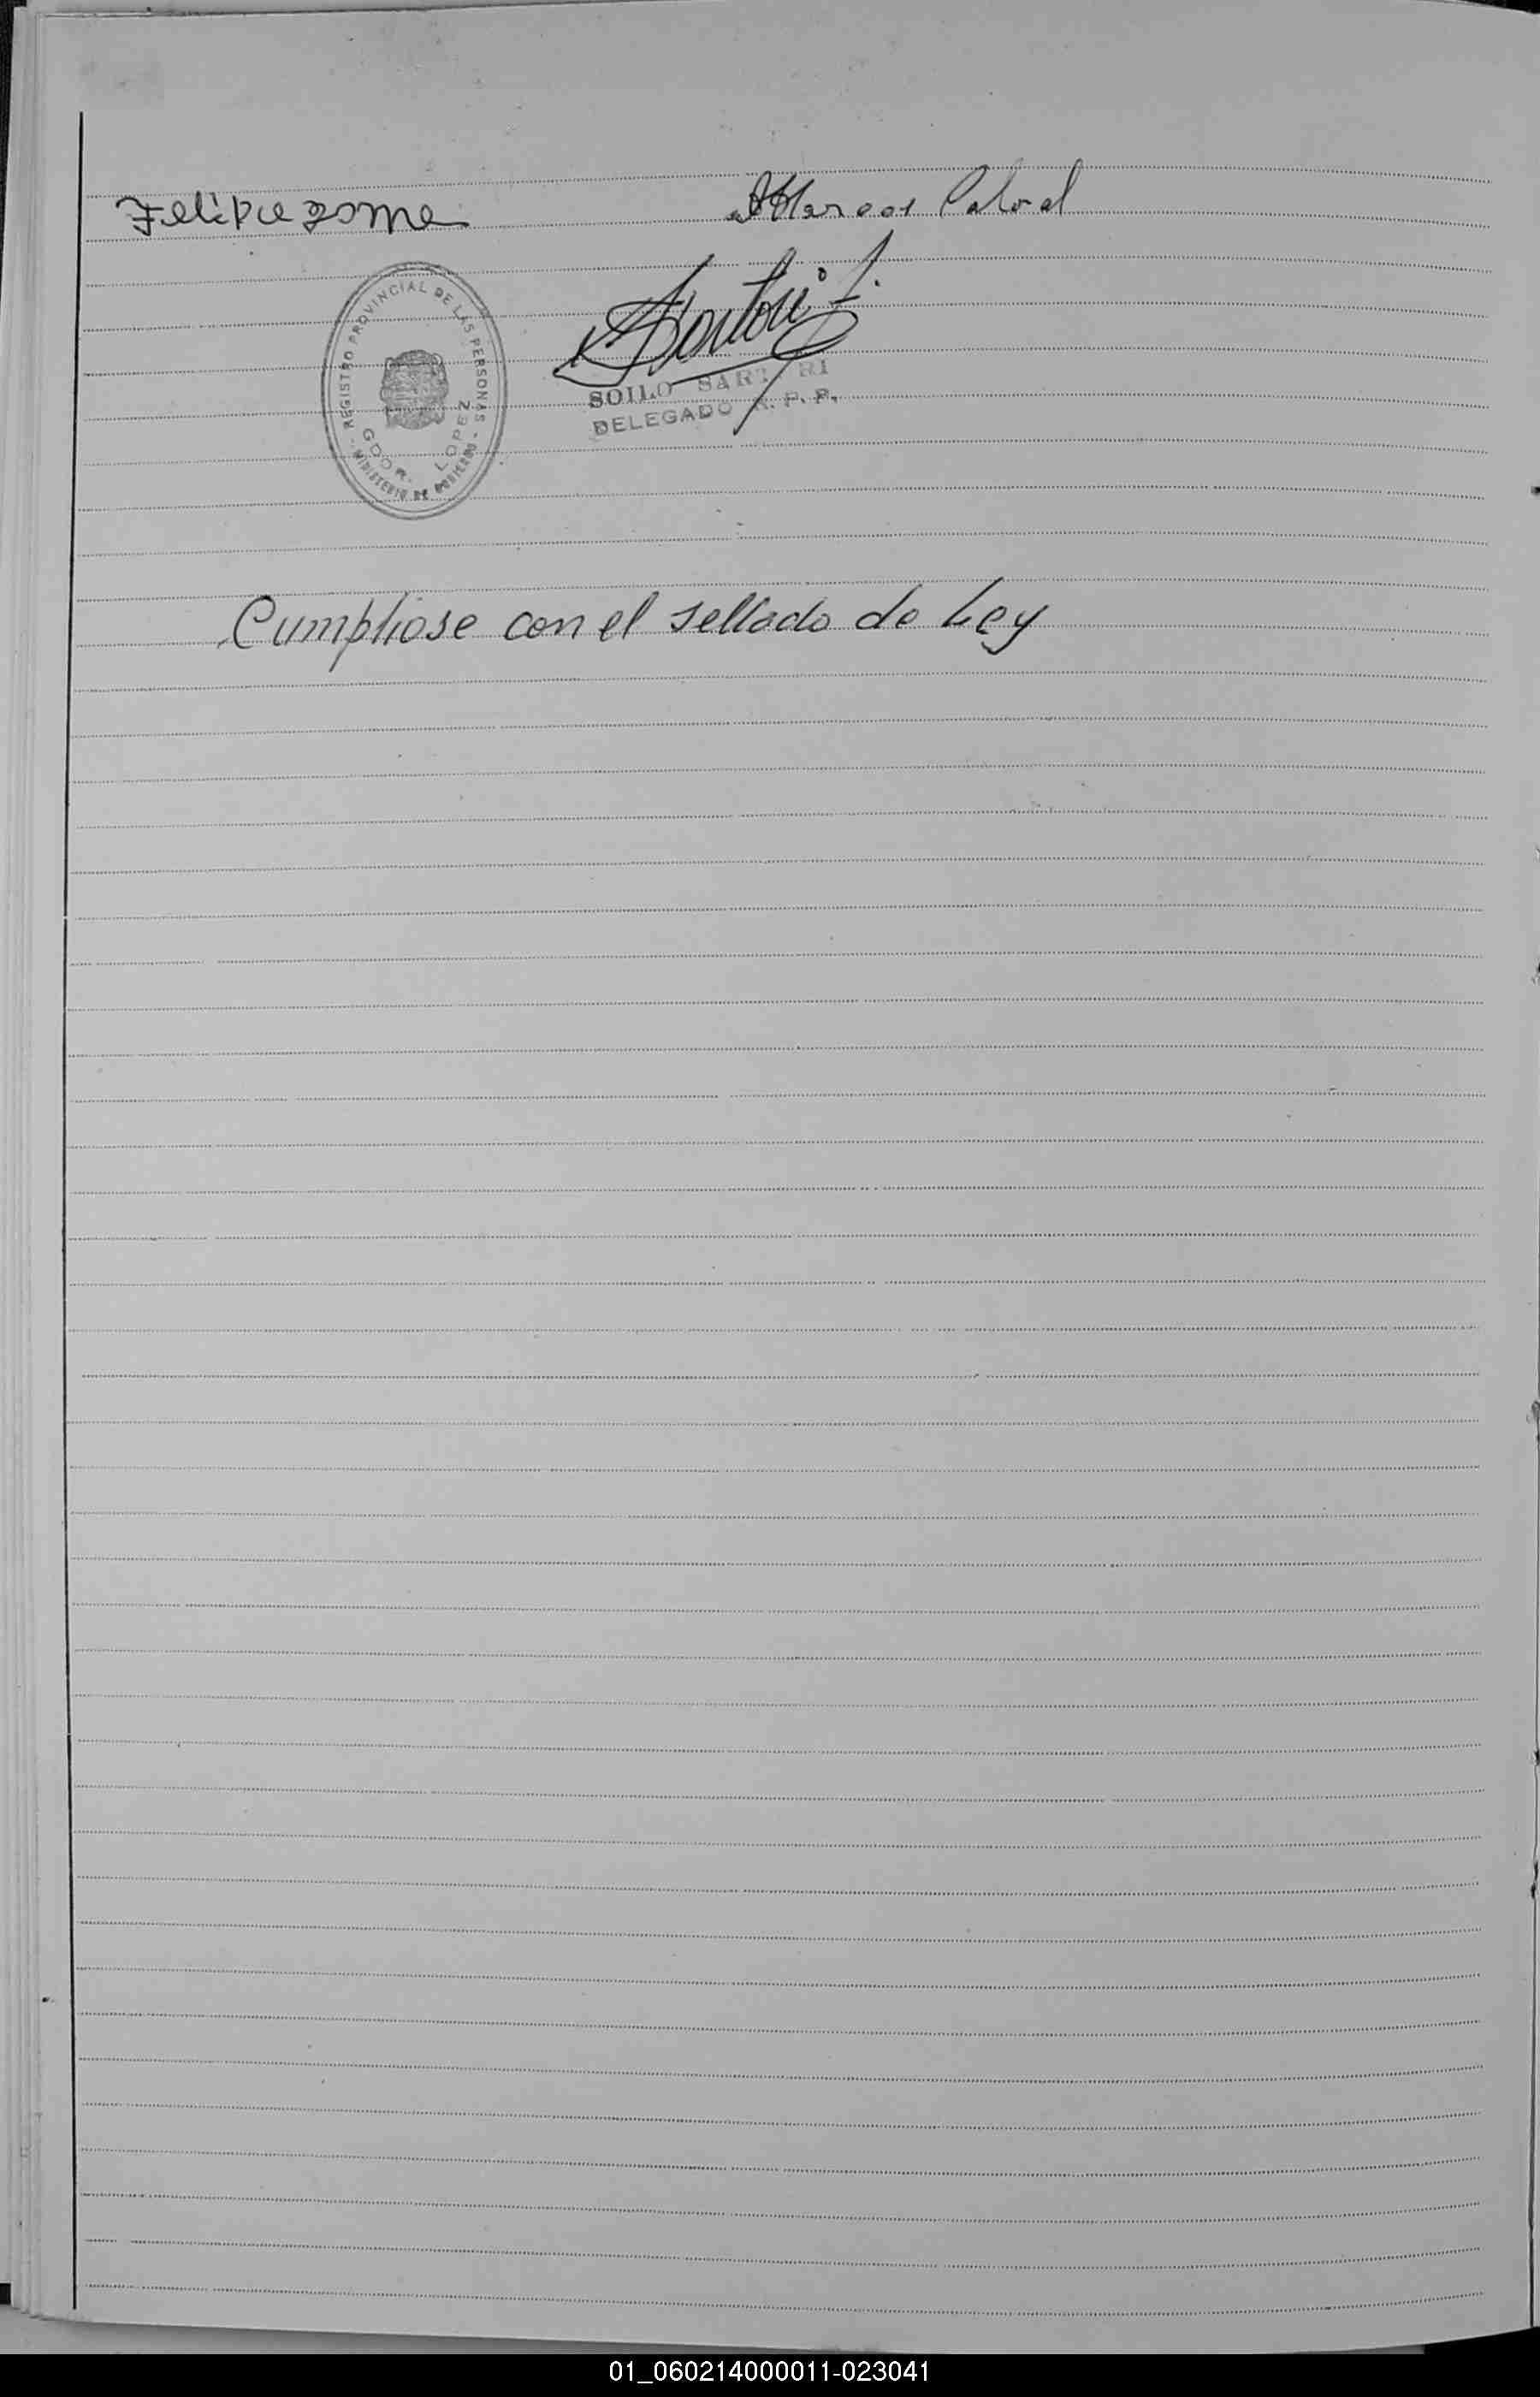 Felipe gome Marcos Cabral
REGISTRO PROVINCIAL DE LAS PERSONAS
GDOR. LOPEZ
- MINISTERIO DE GOBIERNO -
Sartori S.
SOILO SARTORI
DELEGADO R. P. P.
Cumpliose con el sellado de Ley
01_060214000011-023041